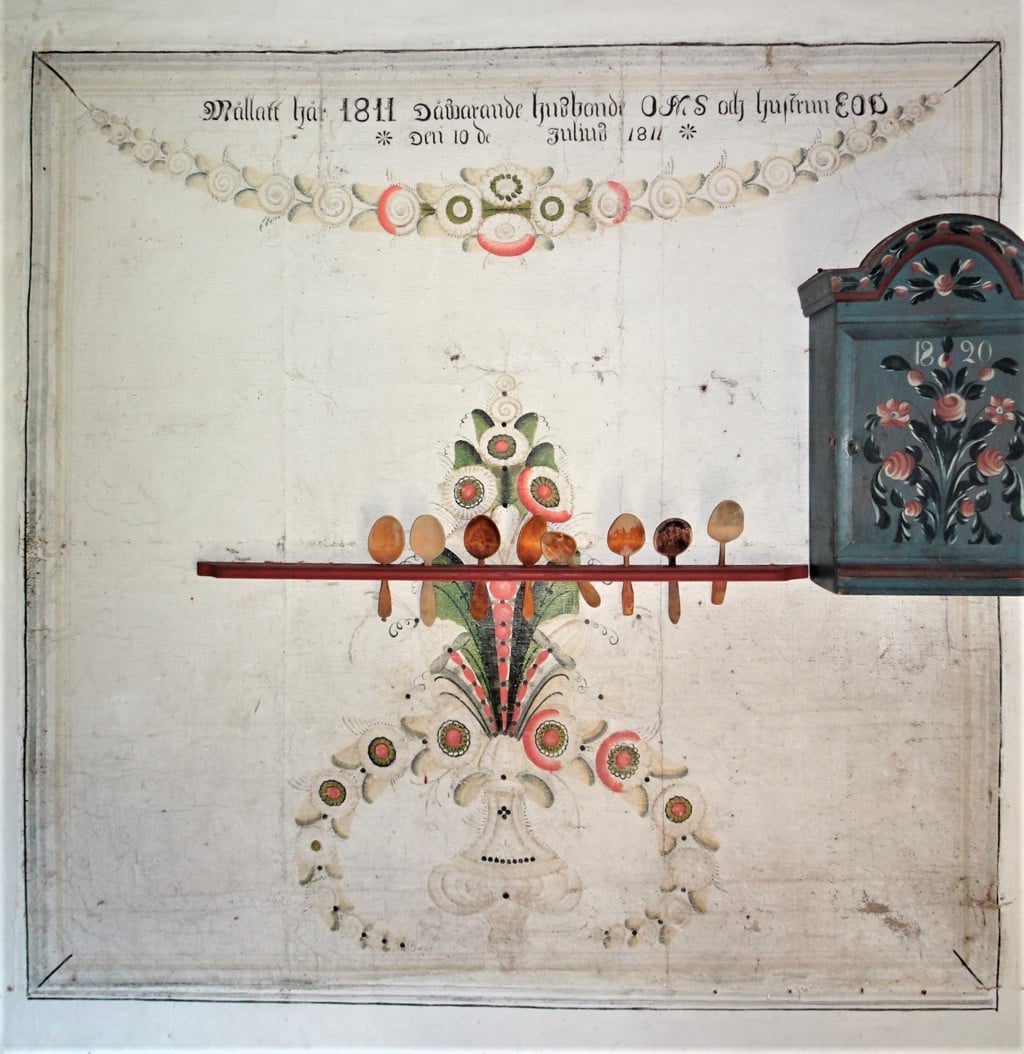 Mållatt hår 1811 Dåwarande husbonde OMS och hustrun EOD
* Den 10 de Julius 1811 *
1820